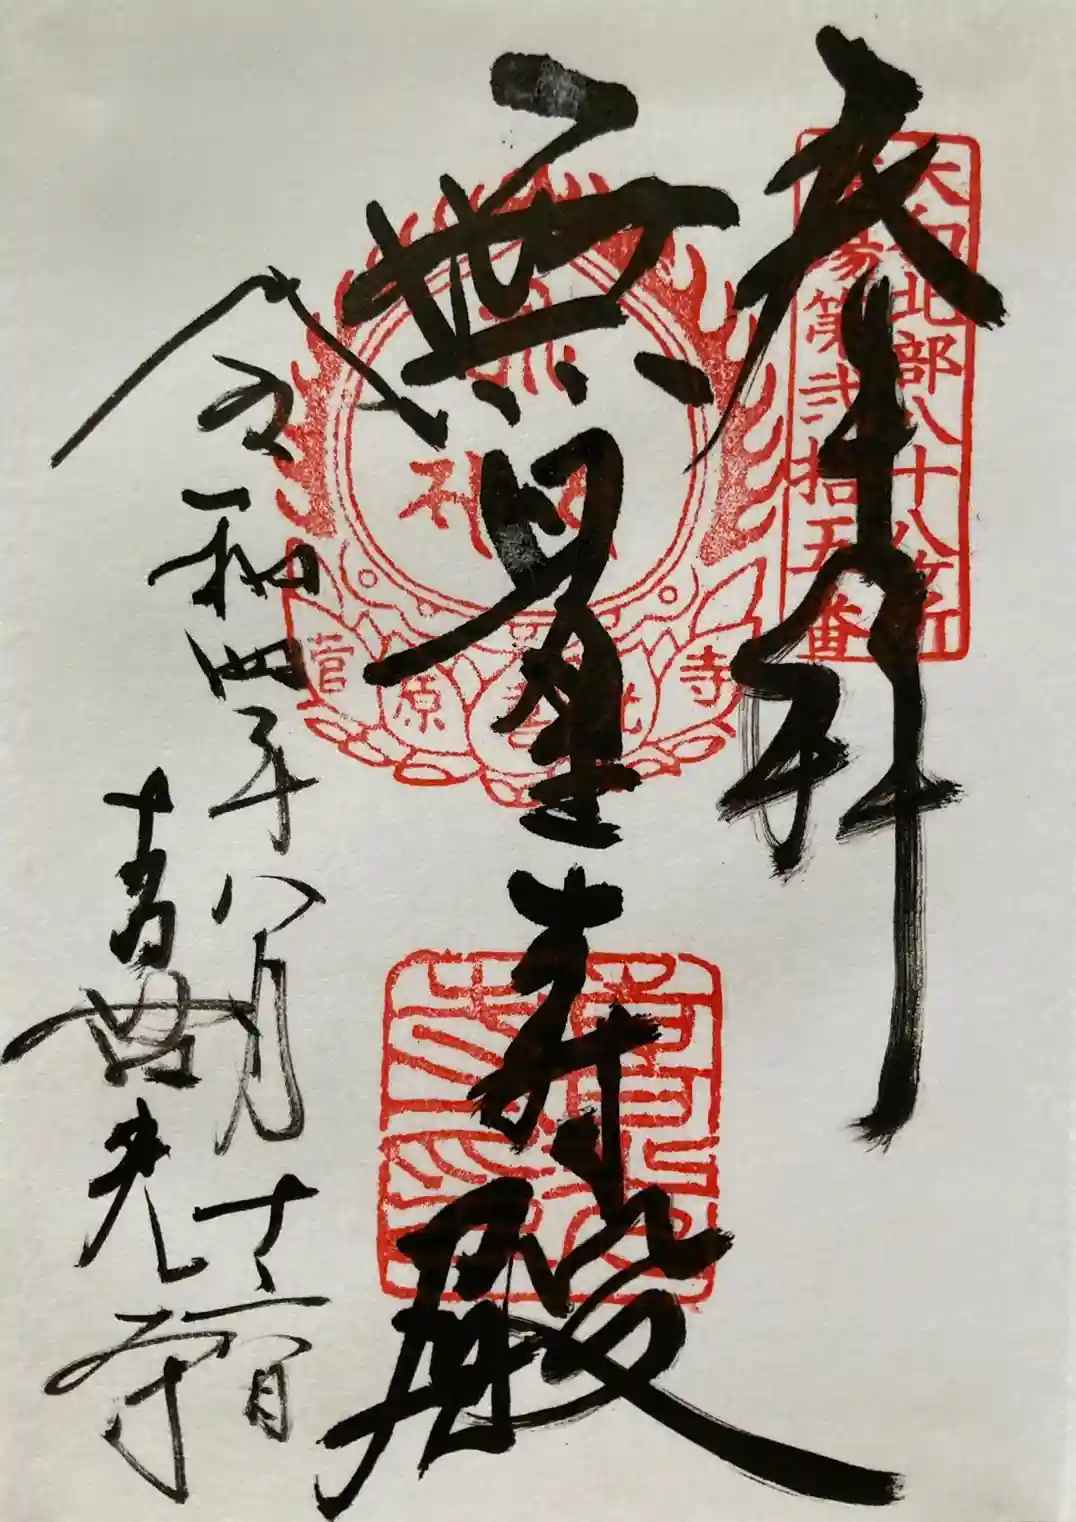 大和北部八十八ヶ所
霊場第弐拾五番
奉拝
無量寿殿
菅原喜光寺
令和四年八月十六日
喜光寺